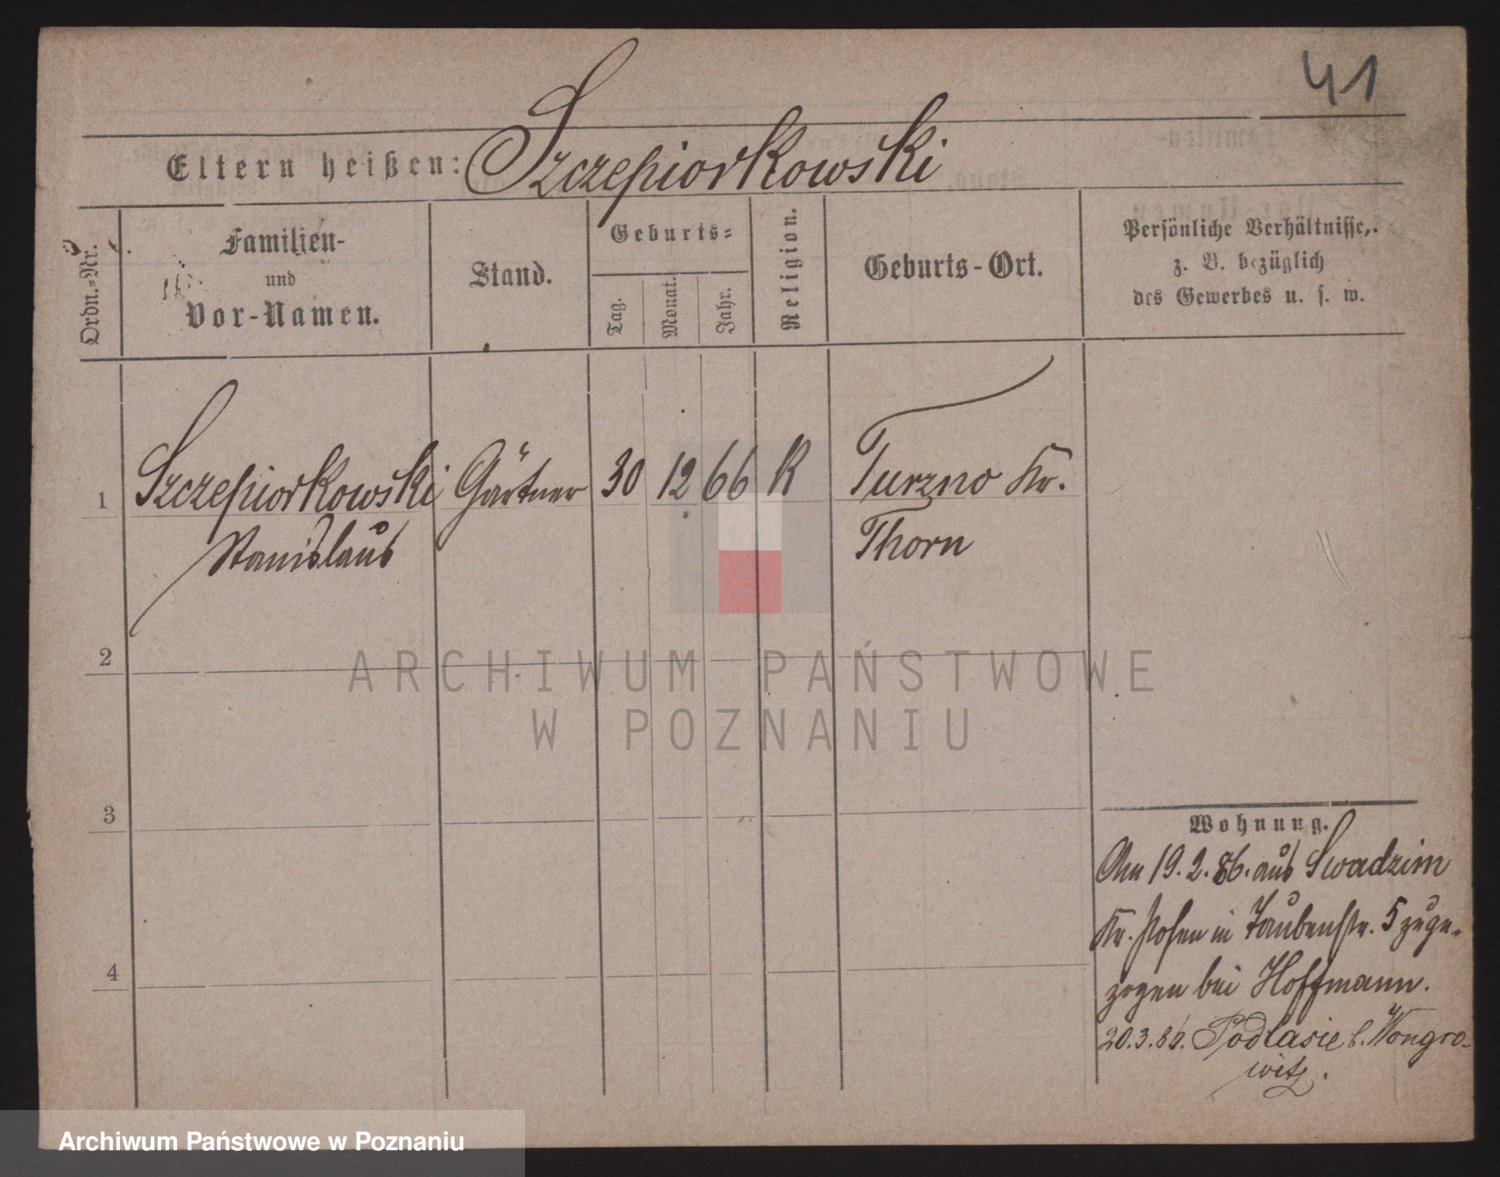 41
Eltern heißen: Szczepiorkowski
Ordn.-Nr.
Familien-
und
Vor-Namen.
Stand.
Geburts-
Tag.
Monat.
Jahr.
Religion.
Geburts-Ort.
Persönliche Verhältnisse,
z. B. bezüglich
des Gewerbes u. s. w.
1 Szczepiorkowski Gärtner 30 12 66 K Turzno Kr.
Stanislaus Thorn
2
ARCHIWUM PAŃSTWOWE
W POZNANIU
3
Wohnung.
Am 19.2.86. aus Swadzim
Kr. Posen in Taubenstr. 5 zuge-
zogen bei Hoffmann.
4
20.3.86. Podlasie b. Wongro-
witz.
Archiwum Państwowe w Poznaniu